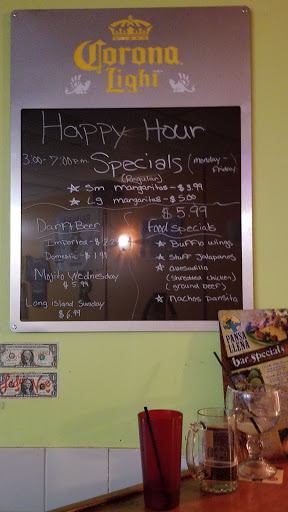 Corona
Light
Happy Hour
3:00-7:00pm Specials (monday-
Friday)
(Regular)
★ Sm margaritas - $3.99
★ Lg margaritas - $5.00
$5.99
Darft Beer
Food Specials
Imported - $2.
★ Bufflo wings
Domestic - $1.99
★ Stuff Jalapanes
★ Quesadilla
Mojito Wednesday
(Shredded chicken)
$5.99
(ground beer)
Long island Sunday
★ Nachos pansita
$6.99
PANSA
LLENA
bar specials